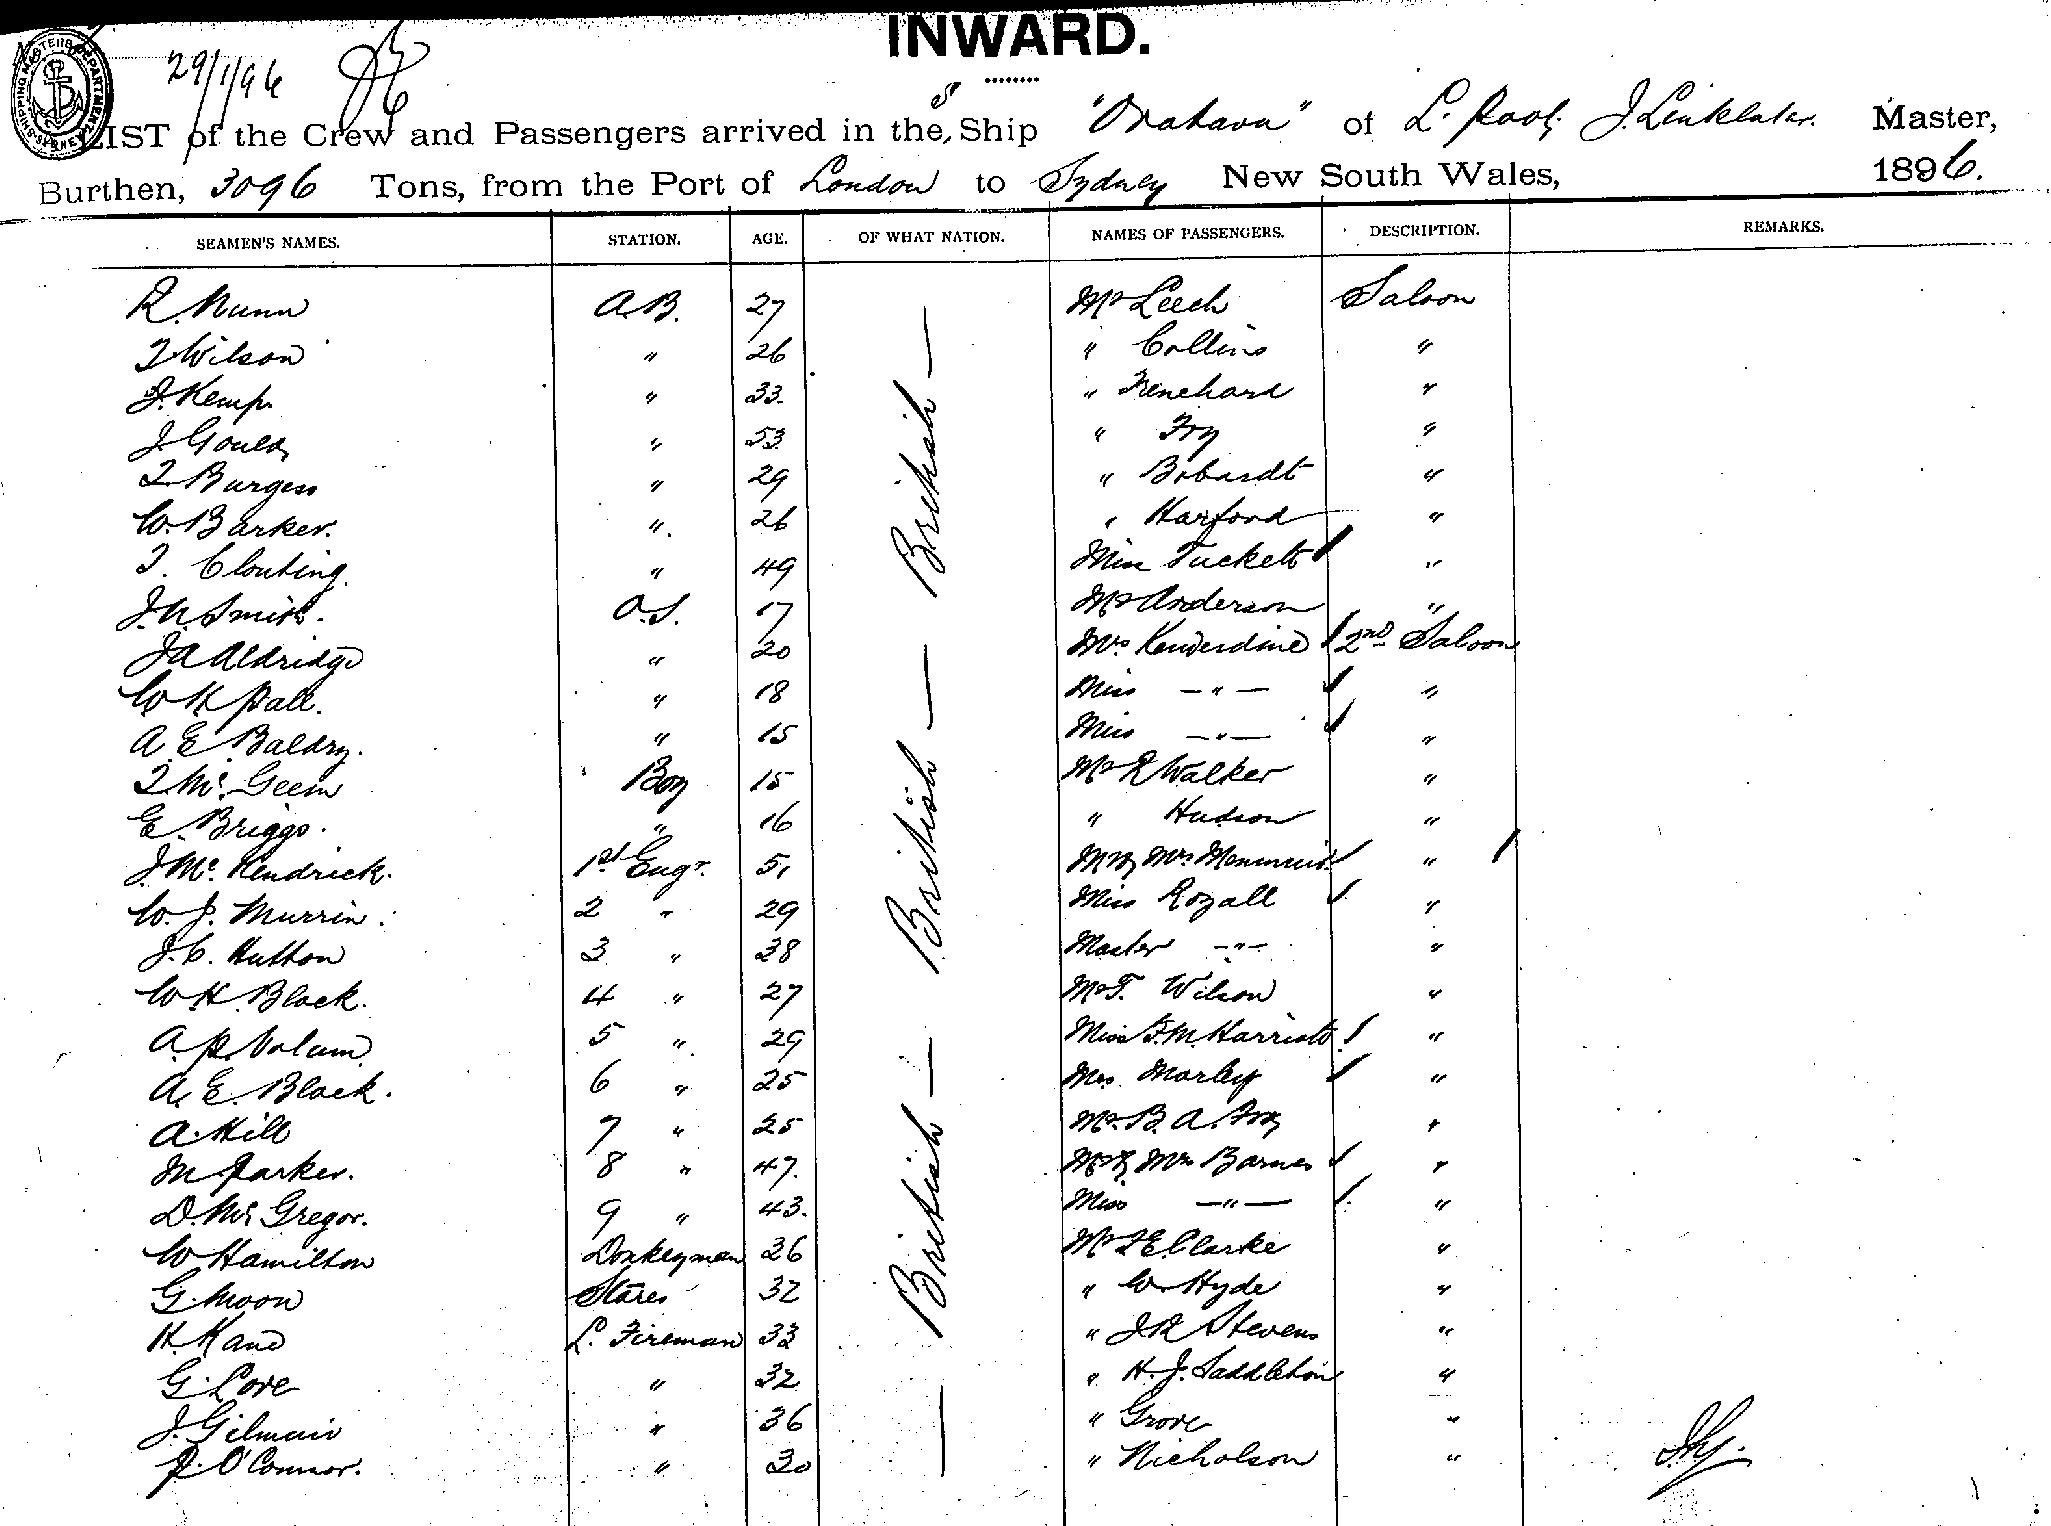 INWARD.
29/1/96
LIST of the Crew and Passengers arrived in the S Ship "Orotava" of L.pool, J. Linklater. Master,
Burthen, 3096 Tons, from the Port of London to Sydney New South Wales, 1896.
SEAMEN'S NAMES. STATION. AGE. OF WHAT NATION. NAMES OF PASSENGERS. DESCRIPTION. REMARKS.
R. Nunn A.B. 27 — British — Mr Leech Saloon
T Wilson " 26 " Collins "
J. Kemp " 33 " Trenchard "
J. Gould " 53 " Fry "
T Burgess " 29 " Bobardt "
W. Barker. " 26 " Harford "
T. Clouting. " 49 Miss Tuckett "
J.N. Smith. O.S. 17 Mr Anderson "
J A Aldridge " 20 — British — Mrs Kenderdine 2nd Saloon
W H Pall. " 18 Miss — " — "
A. E. Baldry. " 15 Miss — " — "
T McGeem Boy 15 Mr R Walker "
E. Briggs. " 16 " Hudson "
J. McKendrick. 1st Engr. 51 Mr & Mrs "
W. J. Murrin. 2 " 29 Miss Royall "
J. C. Hutton 3 " 38 Master — " — "
W H Black. 4 " 27 Mr T. Wilson "
A. P. Volum 5 " 29 — British — Miss F. M. "
A. E. Black. 6 " 25 Mrs Morley "
A. Hill 7 " 25 Mr. B. A. Foy "
M Parker. 8 " 47. Mr & Mrs Barnes "
D. McGregor. 9 " 43. Miss — " — "
W Hamilton Donkeyman 36 Mr T E Clarke "
G. Moon Stores 32 " W. Hyde "
H Kane L. Fireman 33 " J R Stevens "
G. Love " 32 — " H. J. Saddleton "
J. Gilmair " 36 " Grove "
P. O'Connor. " 30 " Nicholson "